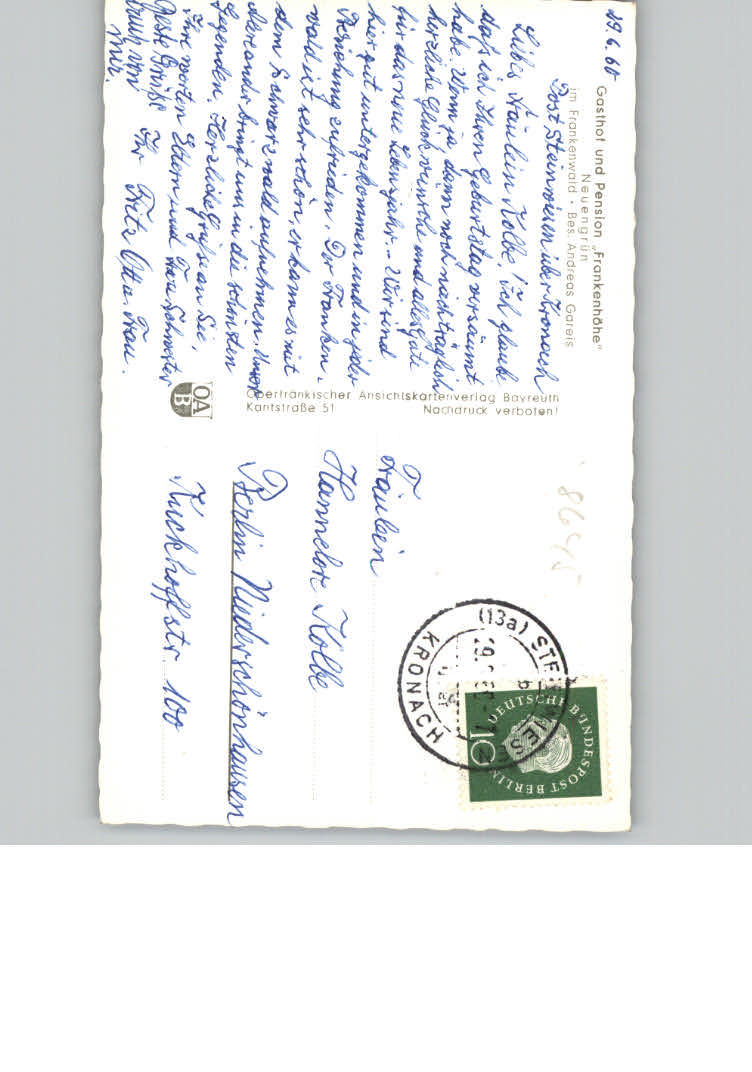 29.6.60
Gasthof und Pension „Frankenhöhe"
Neuengrün
im Frankenwald · Bes. Andreas Gareis
Post Steinwiesen über Kronach
Liebes Fräulein Kolbe! Ich glaube
daß ich Ihren Geburtstag versäumt
habe. Wenn ja dann noch nachträglich
herzliche Glückwünsche und alles Gute
für das neue Lebensjahr. – Wir sind
hier gut untergekommen und in jeder
Beziehung zufrieden. Der Franken-
wald ist sehr schön, er kann es mit
dem Schwarzwald aufnehmen. Unser
Alexander bringt uns in die schönsten
Gegenden. Herzliche Grüße an Sie,
Ihre werten Eltern und Frau Schwester
Ihr Fritz Otto u. Frau.
Beste Grüße
auch von
mir.
Oberfränkischer Ansichtskartenverlag Bayreuth
Kantstraße 51 Nachdruck verboten!
OA
B
86415
(13a) STEINWIESEN
KRONACH
DEUTSCHE BUNDESPOST BERLIN
10
Fräulein
Hannelore Kolbe
Berlin Niederschönhausen
Kuckhoffstr. 100